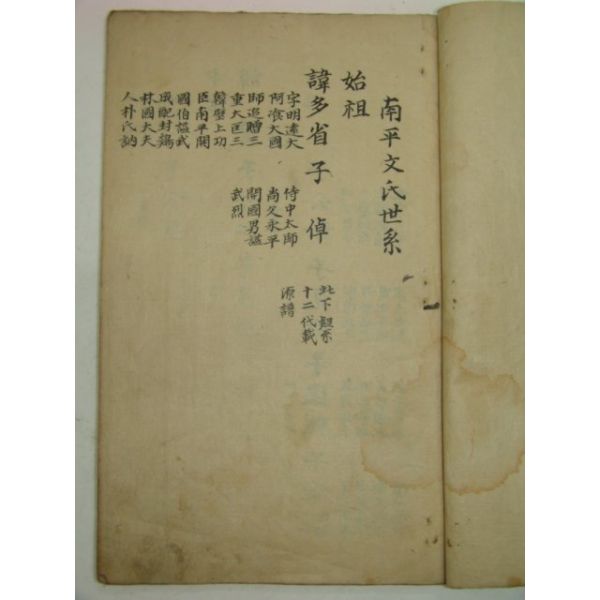 南平文氏世系
始祖
諱多省 子倬
字明遠大
阿飡大國
師追贈三
重大匡三
韓壁上功
臣南平開
國伯諡武
成配封鷄
林國大夫
人朴氏納
侍中太師
尚父永平
開國男諡
武烈
此下觀系
十二代載
源譜